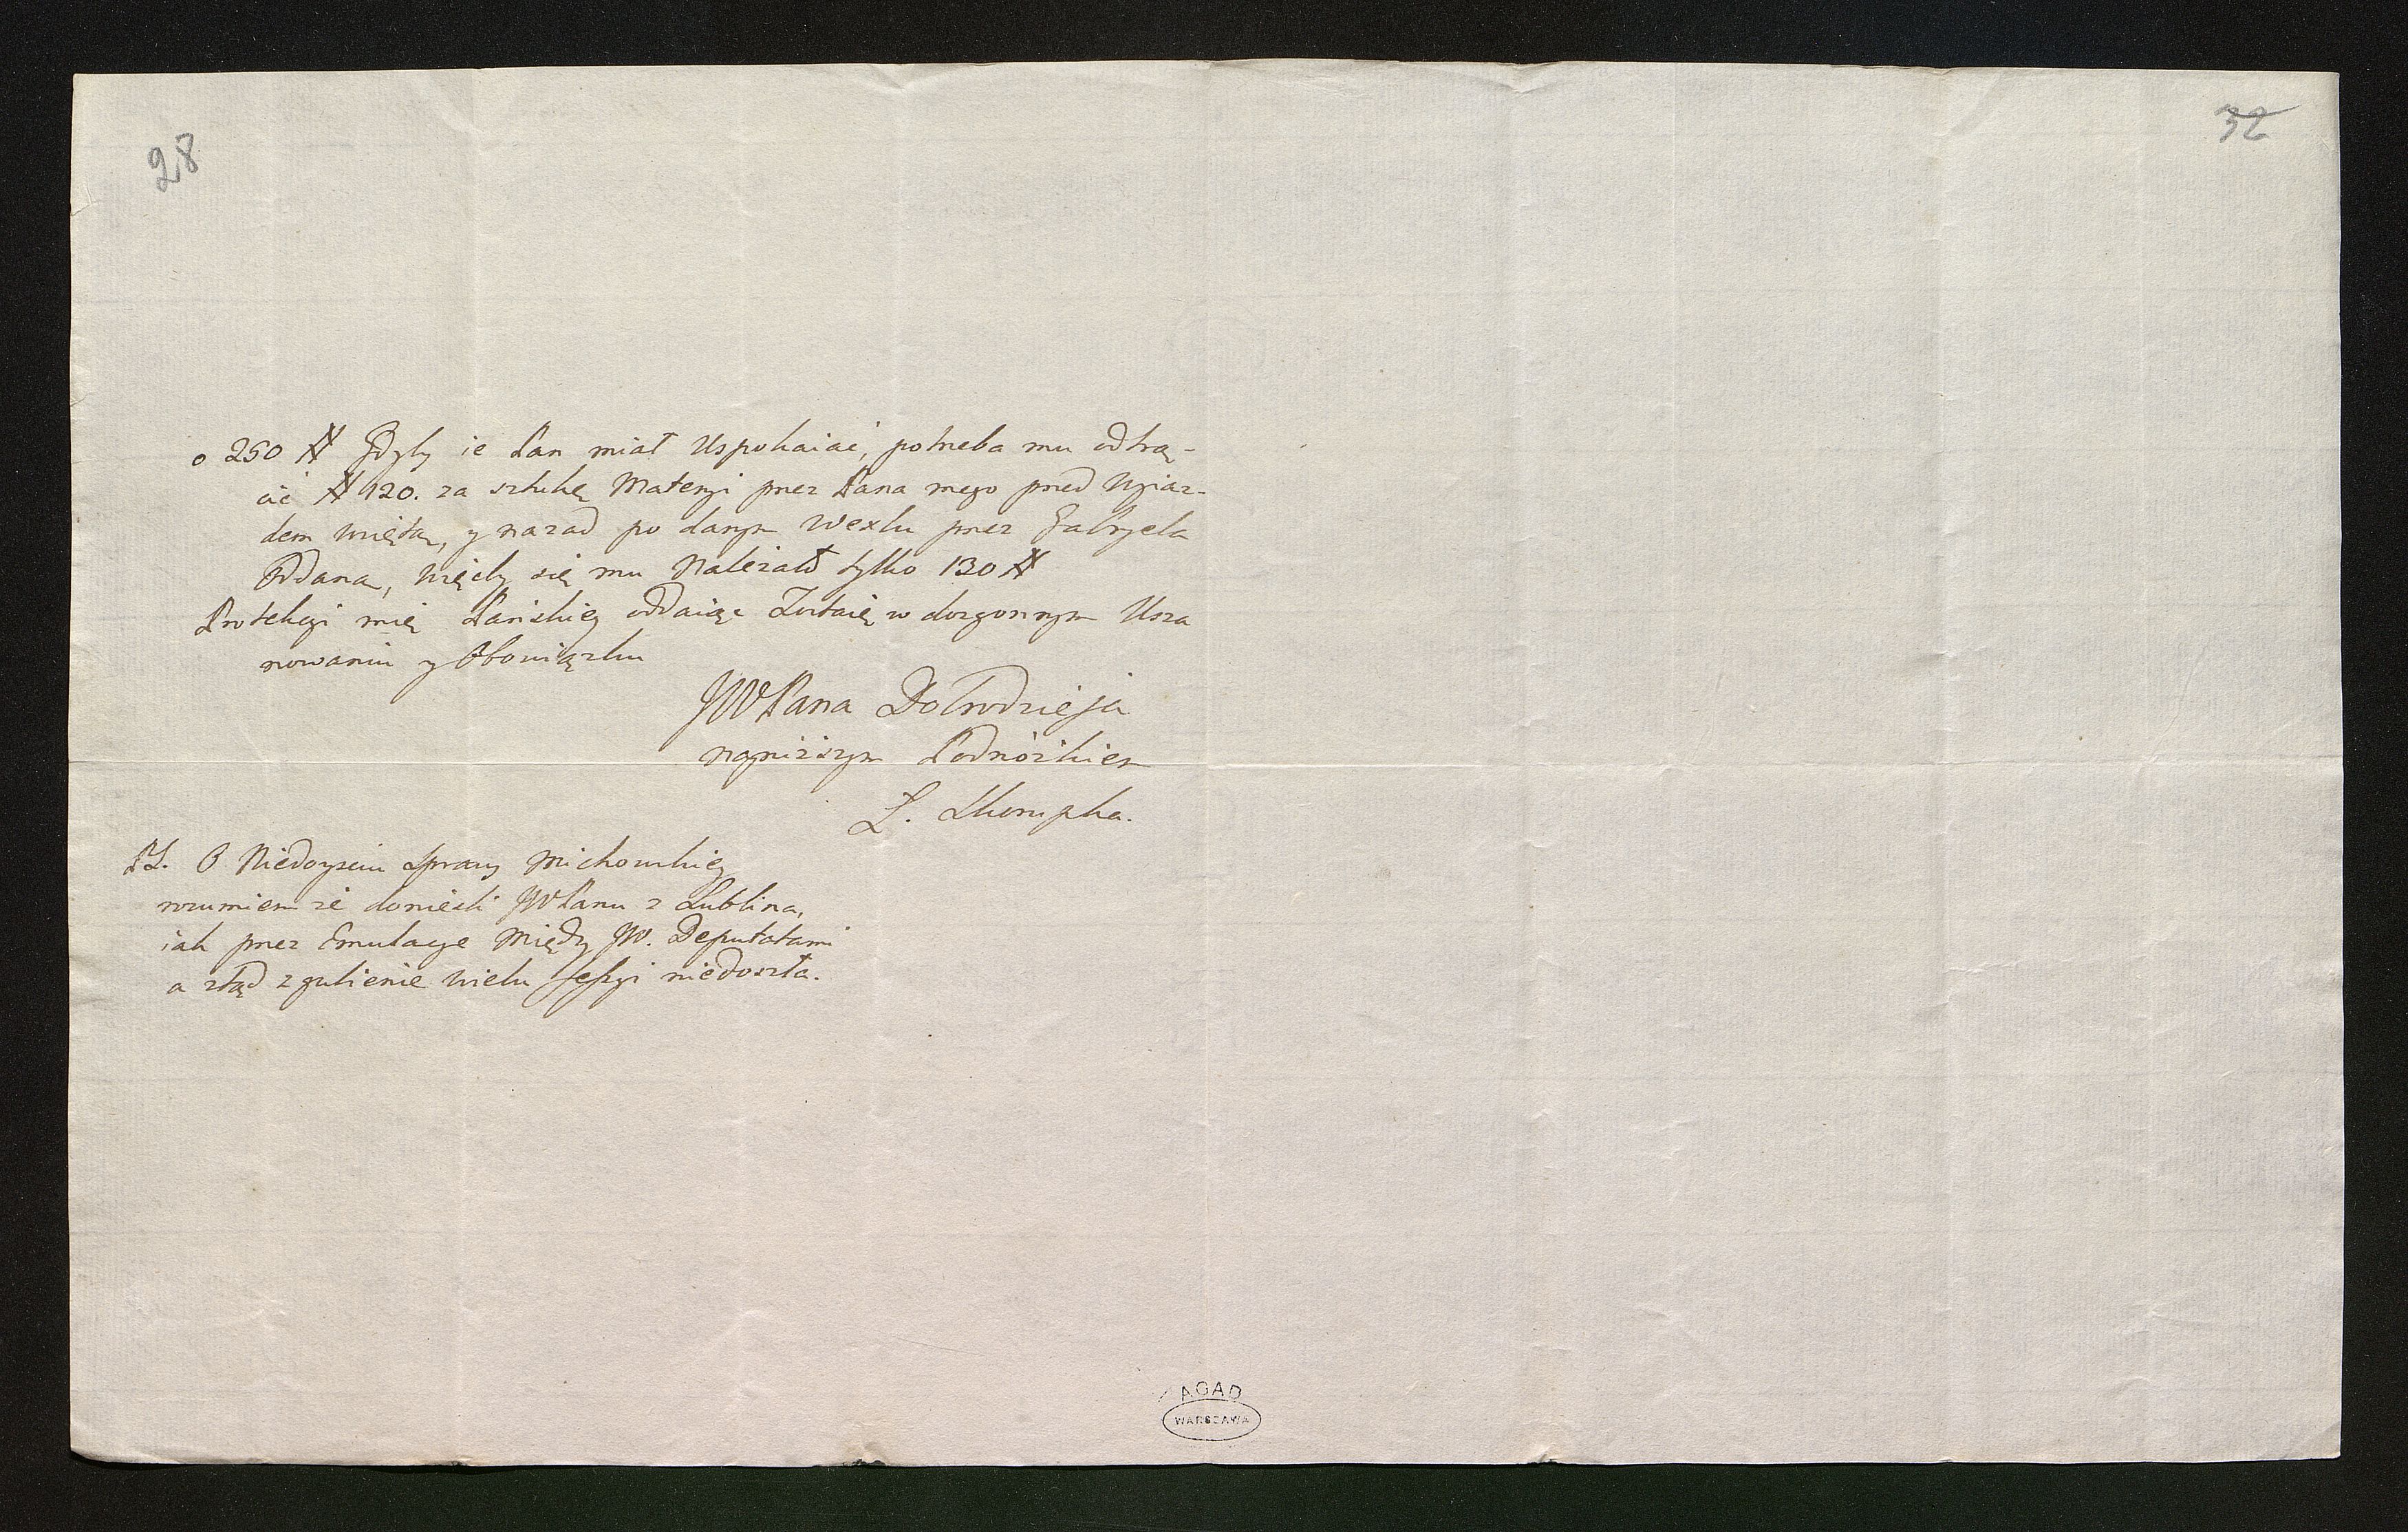 28
32
o 250 # Gdyby ie Pan miał Uspokaiać, potrzeba mu odtrą-
cić # 120. za sztukę Materyi przez Pana mego przed Wyiaz-
dem wziętą, y nazad po danym Wexlu przez Gabryela
Oddaną, więcby się mu Należało tylko 130 #
Protekcyi mię Pańskiey oddaiąc Zostaię w dozgonnym Usza
nowaniu y Obowiązku
JWPana Dobrodzieja
nayniższym Podnóżkiem
L. Skorupka.
PS. O Niedoyściu Sprawy Michowskiey
rozumiem że donieśli JWPanu z Lublina,
iak przez Emulacye Między JW. Deputatami
a ztąd zgubienie wielu Sessyi niedoszła.
AGAD
WARSZAWA